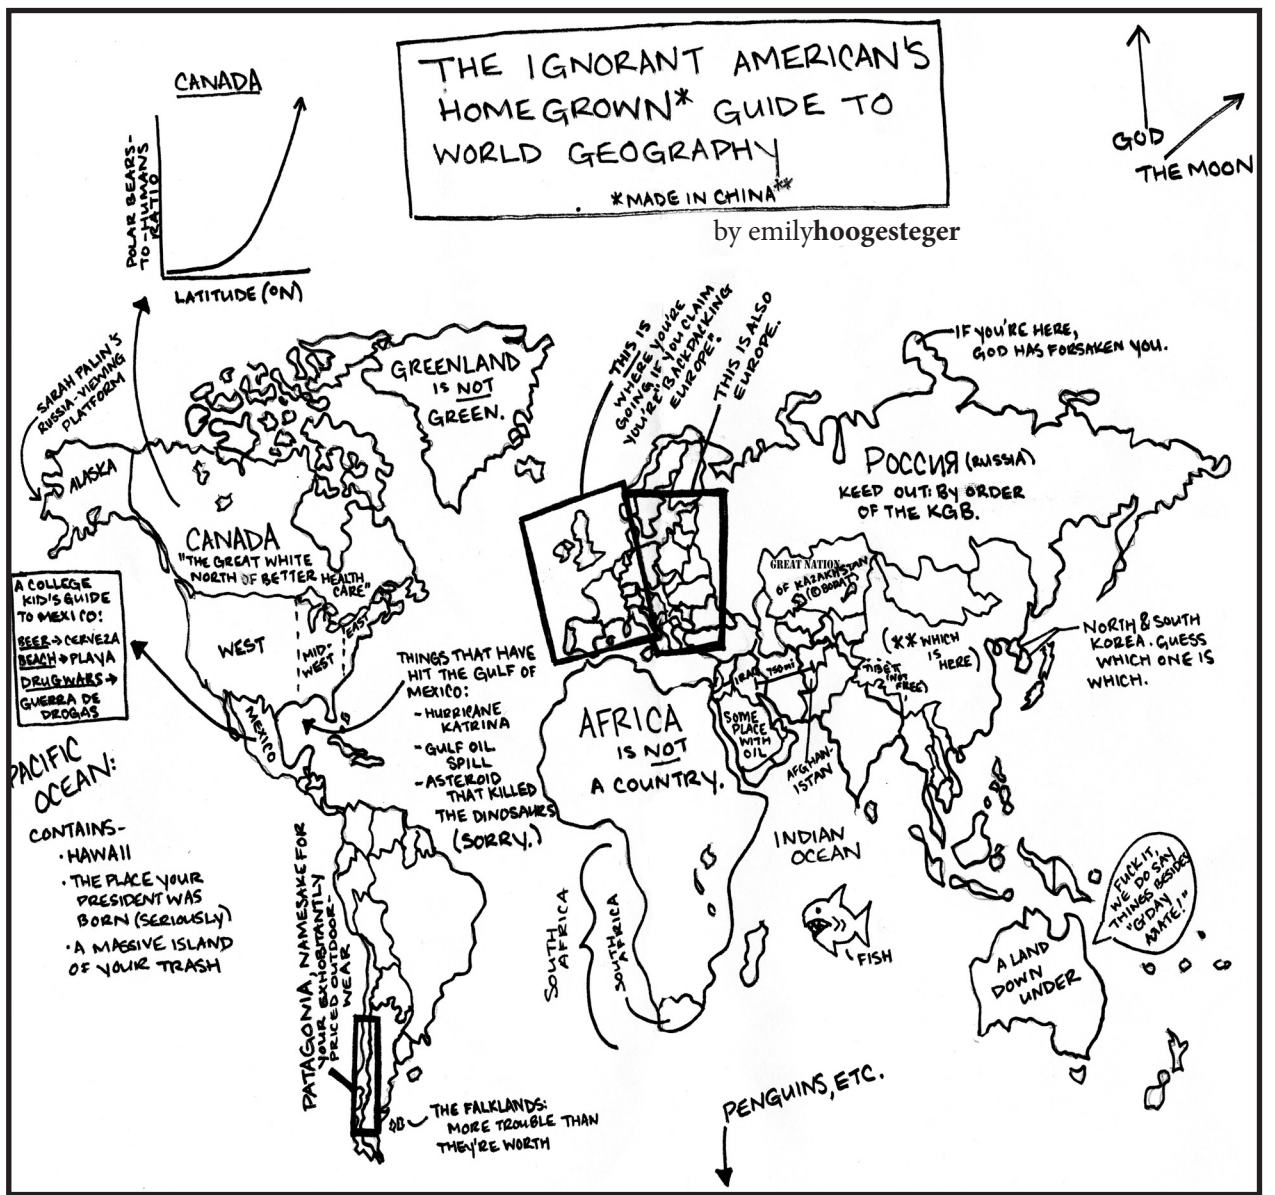 THE IGNORANT AMERICAN'S
HOMEGROWN* GUIDE TO
WORLD GEOGRAPHY
*MADE IN CHINA**
by emilyhoogesteger
CANADA
POLAR BEARS-
TO-HUMANS
RATIO
LATITUDE (°N)
GOD
THE MOON
SARAH PALIN'S
RUSSIA-VIEWING
PLATFORM
ALASKA
GREENLAND
IS NOT
GREEN.
THIS IS
WHERE YOU'RE
GOING, IF YOU CLAIM
YOU'RE "BACKPACKING
EUROPE".
THIS IS ALSO
EUROPE.
IF YOU'RE HERE,
GOD HAS FORSAKEN YOU.
РОССИЯ (RUSSIA)
KEEP OUT: BY ORDER
OF THE KGB.
CANADA
"THE GREAT WHITE
NORTH OF BETTER HEALTH
CARE"
A COLLEGE
KID'S GUIDE
TO MEXICO:
BEER → CERVEZA
BEACH → PLAYA
DRUG WARS →
GUERRA DE
DROGAS
WEST
MID-
WEST
EAST
MEXICO
THINGS THAT HAVE
HIT THE GULF OF
MEXICO:
- HURRICANE
KATRINA
- GULF OIL
SPILL
- ASTEROID
THAT KILLED
THE DINOSAURS
(SORRY.)
GREAT NATION
OF KAZAKHSTAN
(© BORAT)
(** WHICH
IS
HERE)
NORTH & SOUTH
KOREA. GUESS
WHICH ONE IS
WHICH.
IRAQ
750 mi
TIBET
(NOT
FREE)
SOME
PLACE
WITH
OIL
AFGHAN-
ISTAN
AFRICA
IS NOT
A COUNTRY.
PACIFIC
OCEAN:
CONTAINS-
• HAWAII
• THE PLACE YOUR
PRESIDENT WAS
BORN (SERIOUSLY)
• A MASSIVE ISLAND
OF YOUR TRASH
PATAGONIA, NAMESAKE FOR
YOUR EXHORBITANTLY
PRICED OUTDOOR-
WEAR
THE FALKLANDS:
MORE TROUBLE THAN
THEY'RE WORTH
SOUTH
AFRICA
SOUTH
AFRICA
INDIAN
OCEAN
FISH
FUCK IT,
WE DO SAY
THINGS BESIDES
"G'DAY
MATE!"
A LAND
DOWN
UNDER
PENGUINS, ETC.